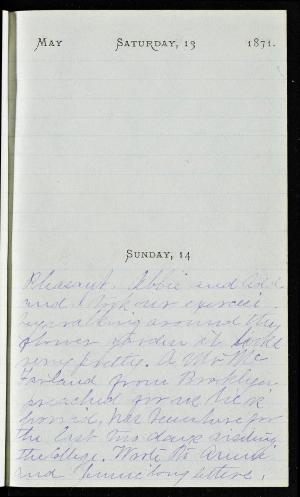 May Saturday, 13 1871.
Sunday, 14
Pleasant. Abbie and
and I took our exercise
by walking around the
flower garden it looks
very pretty. A Mr Mc
Farland from Brooklyn
preached for us he is
has been here for
the last two days visiting
the College. Wrote to
and long letters.